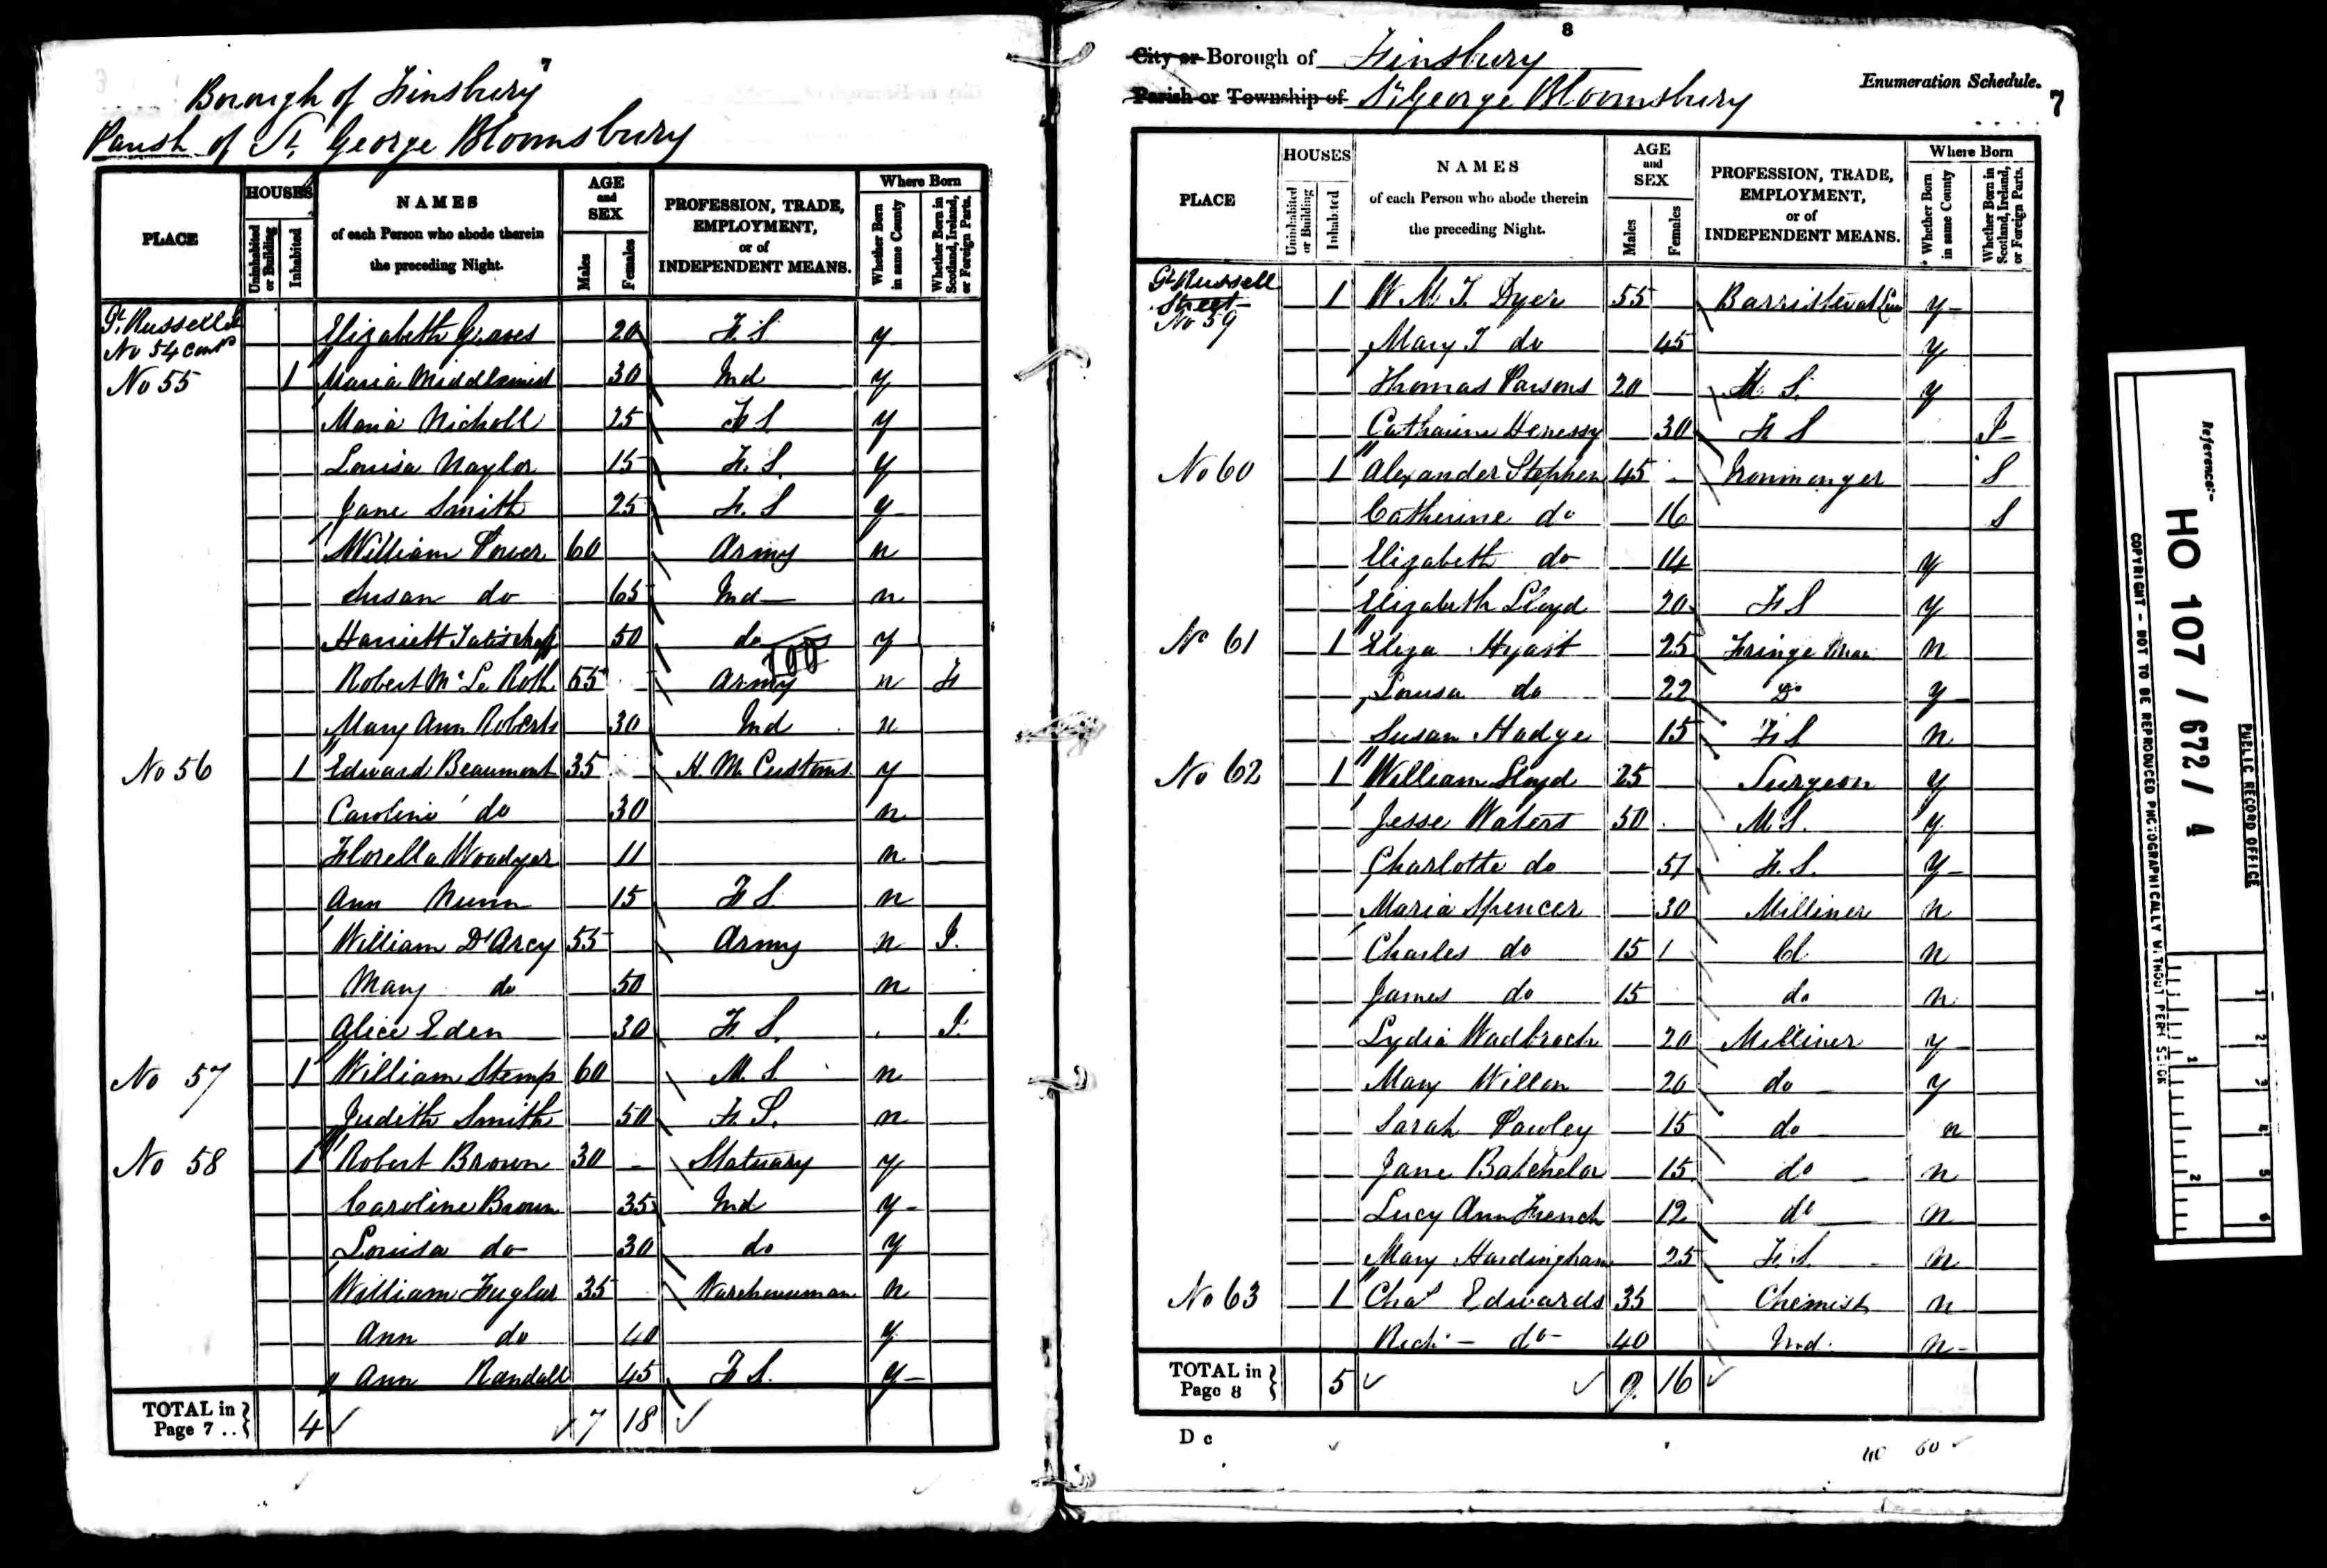 7
Borough of Finsbury
Parish of St. George Bloomsbury
PLACE
HOUSES
Uninhabited or Building
Inhabited
NAMES
of each Person who abode therein
the preceding Night.
AGE and SEX
Males
Females
PROFESSION, TRADE,
EMPLOYMENT,
or of
INDEPENDENT MEANS.
Where Born
Whether Born in same County
Whether Born in Scotland, Ireland, or Foreign Parts.
Gt. Russell St
No 54 contd Elizabeth Graves 20 F. S. y
No 55 1 Maria 30 Ind y
Maria Nicholl 25 F S. y
Louisa Naylor 15 F. S. y
Jane Smith 25 F. S y
William Power 60 Army n
Susan do 65 Ind n
Harriett 50 do y
100
Robert Mc Le Roth 55 Army n F
Mary Ann Roberts 30 Ind n
No 56 1 Edward Beaumont 35 H. M. Customs y
Caroline do 30 n
Florella Woodyer 11 n
Ann Nunn 15 F S. n
William D'Arcy 55 Army n I.
Mary do 50 n
Alice Eden 30 F S. I.
No 57 1 William Stemp 60 M. S. n
Judith Smith 50 F. S. n
No 58 1 Robert Brown 30 Statuary y
Caroline Brown 35 Ind y
Louisa do 30 do y
William Fuglar 35 Warehouseman n
Ann do 40 y
Ann Randall 45 F S. y
TOTAL in
Page 7 .. 4 7 18
8
City or Borough of Finsbury
Parish or Township of St George Bloomsbury
Enumeration Schedule.
7
PLACE
HOUSES
Uninhabited or Building
Inhabited
NAMES
of each Person who abode therein
the preceding Night.
AGE and SEX
Males
Females
PROFESSION, TRADE,
EMPLOYMENT,
or of
INDEPENDENT MEANS.
Where Born
Whether Born in same County
Whether Born in Scotland, Ireland, or Foreign Parts.
Gt Russell
Street
No 59 1 W M. T. Dyer 55 Barrister at Law y
Mary T do 45 y
Thomas Parsons 20 M. S. y
Catharine Henessy 30 F S I
No 60 1 Alexander Stephen 45 Ironmonger S
Catherine do 16 S
Elizabeth do 14 y
Elizabeth Lloyd 20 F S y
No 61 1 Eliza Hyast 25 Fringe Ma n
Louisa do 22 Do y
Susan Hadge 15 F S n
No 62 1 William Lloyd 25 Surgeon y
Jesse Waters 50 M S. y
Charlotte do 51 F. S. y
Maria Spencer 30 Milliner n
Charles do 15 1 Cl n
James do 15 do n
Lydia 20 Milliner y
Mary Willon 20 do y
Sarah Pawley 15 do n
Jane Batchelor 15 do n
Lucy Ann French 12 do n
Mary Hardingham 25 F. S. n
No 63 1 Chas Edwards 35 Chemist n
Richd do 40 Ind. n
TOTAL in
Page 8 5 9 16
D c
40 60
Reference:-
HO 107 / 672 / 4
PUBLIC RECORD OFFICE
COPYRIGHT - NOT TO BE REPRODUCED PHOTOGRAPHICALLY WITHOUT PERMISSION
1
2
1
2
3
4
5
6